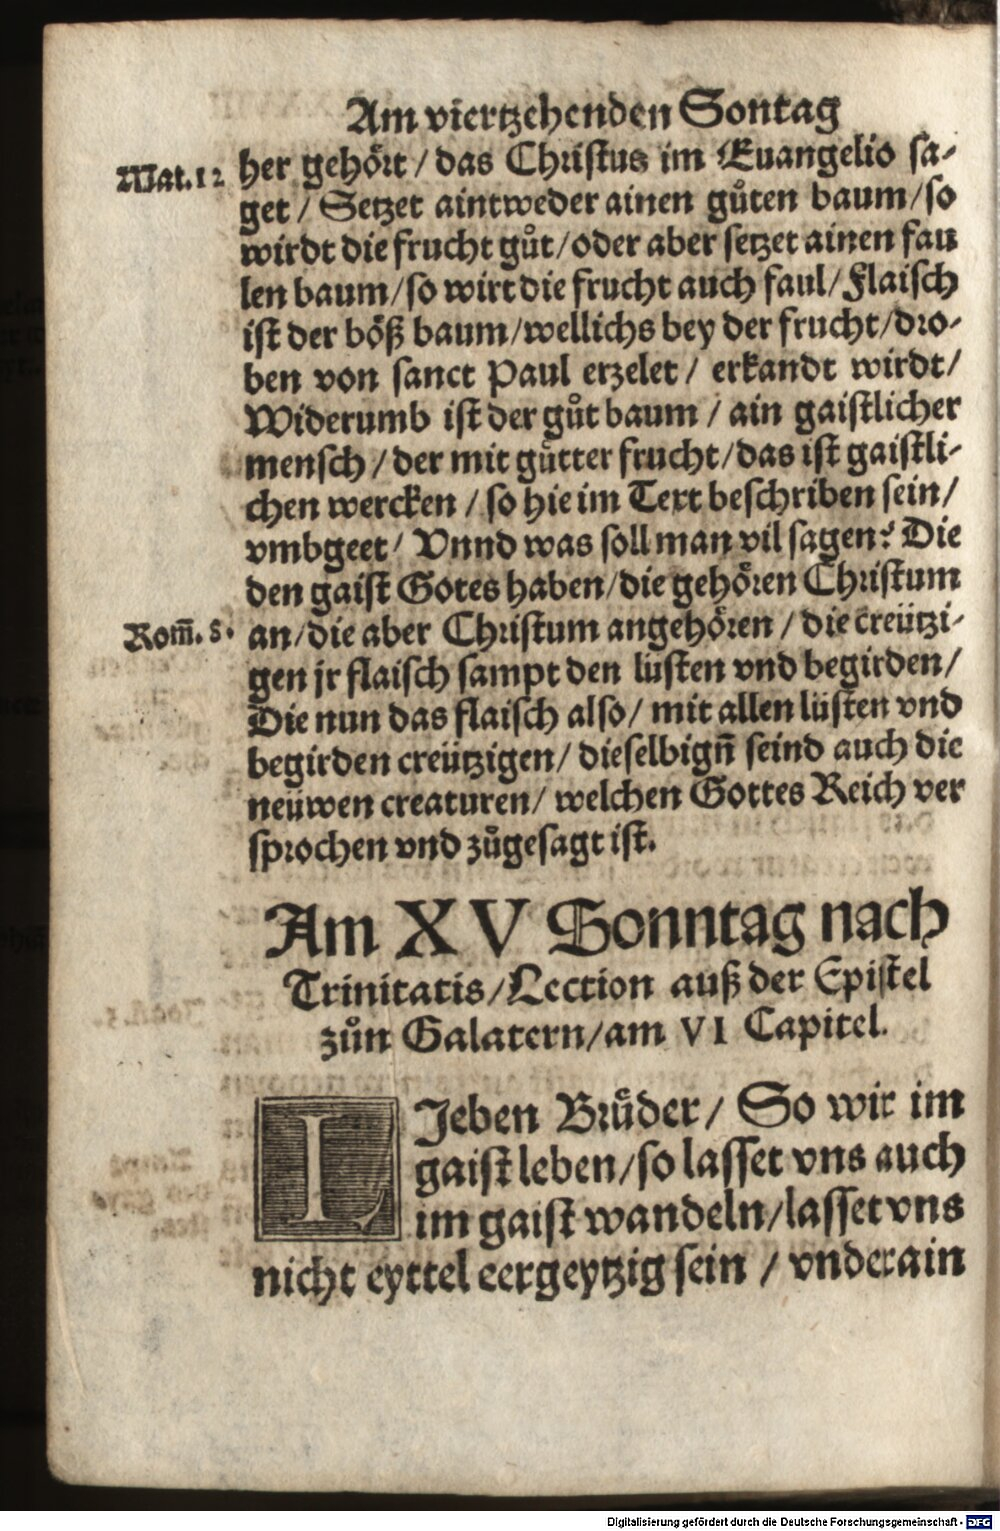 Am viertzehenden Sontag
Mat.12 her gehört / das Christus im Euangelio sa-
get / Setzet aintweder ainen gůten baum / so
wirdt die frucht gůt / oder aber setzet ainen fau
len baum / so wirt die frucht auch faul / Flaisch
ist der böß baum / wellichs bey der frucht / dro-
ben von sanct Paul erzelet / erkandt wirdt /
Widerumb ist der gůt baum / ain gaistlicher
mensch / der mit gůtter frucht / das ist gaistli-
chen wercken / so hie im Text beschriben sein /
vmbgeet / Vnnd was soll man vil sagen? Die
den gaist Gotes haben / die gehören Christum
Rom̄. 8. an / die aber Christum angehören / die creützi-
gen jr flaisch sampt den lüsten vnd begirden /
Die nun das flaisch also / mit allen lüsten vnd
begirden creützigen / dieselbign̄ seind auch die
neüwen creaturen / welchen Gottes Reich ver
sprochen vnd zůgesagt ist.
Am XV Sonntag nach
Trinitatis / Lection auß der Epistel
zůn Galatern / am VI Capitel.
LIeben Brůder / So wir im
gaist leben / so lasset vns auch
im gaist wandeln / lasset vns
nicht eyttel eergeytzig sein / vnderain
Digitalisierung gefördert durch die Deutsche Forschungsgemeinschaft - DFG